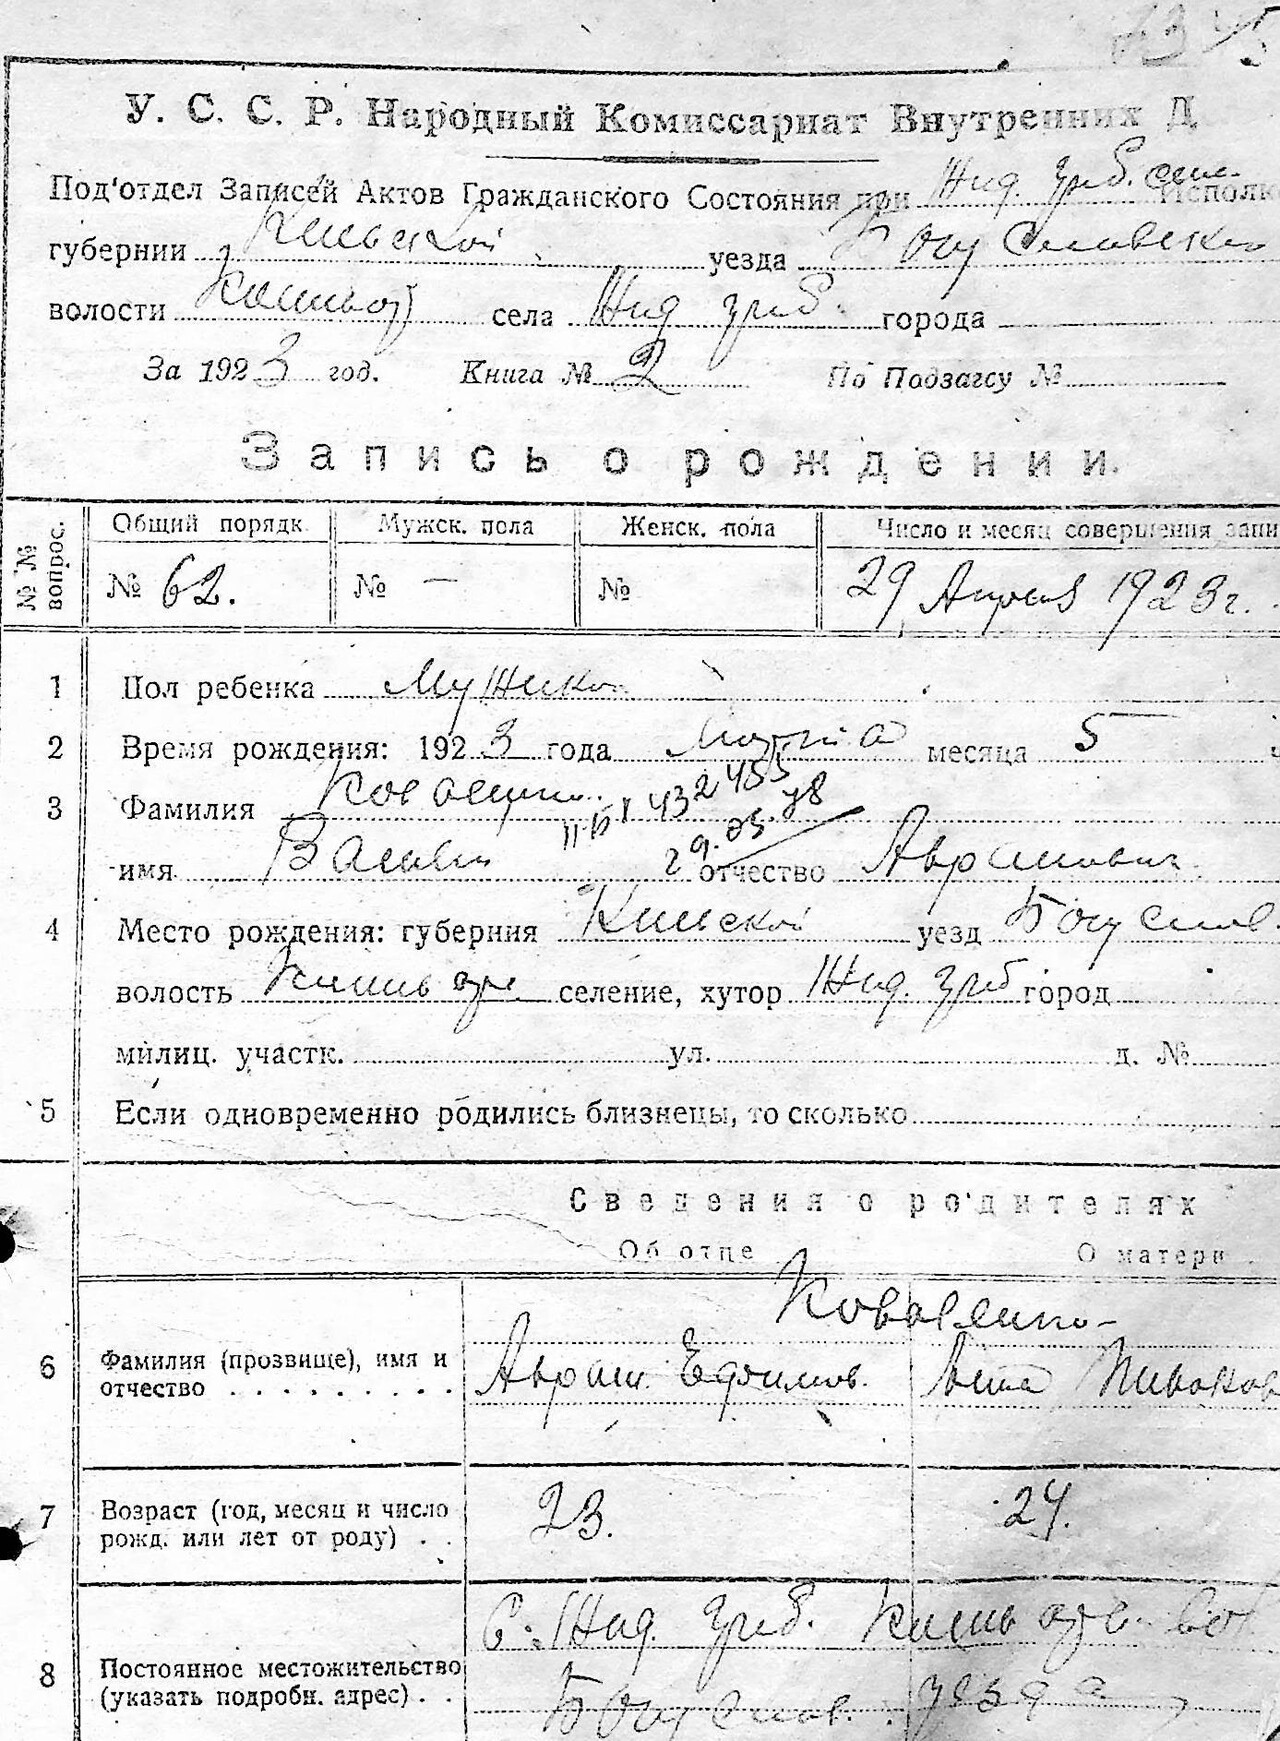 У. С. С. Р. Народный Комиссариат Внутренних Д
Под'отдел Записей Актов Гражданского Состояния при Жид. Греб. сел. Исполк
губернии Киевской уезда Богуславского
волости села Жид. Греб. города
За 1923 год. Книга № 2 По Подзагсу №
Запись о рождении.
№ № вопрос. Общий порядк. Мужск. пола Женск. пола Число и месяц совершения запи
№ 62. № — № 29 Апреля 1923 г.
1 Пол ребенка Мужской
2 Время рождения: 1923 года Марта месяца 5
3 Фамилия Коваленко
имя отчество Аврамович
29.05.78
4 Место рождения: губерния Киевской уезд Богуслав.
волость селение, хутор Жид. Греб город
милиц. участк. ул. д. №
5 Если одновременно родились близнецы, то сколько
Сведения о родителях
Об отце О матери
Коваленко
6 Фамилия (прозвище), имя и отчество Аврам Ефимов.
7 Возраст (год, месяц и число рожд. или лет от роду) 23. 24.
С. Жид. Греб. вол
8 Постоянное местожительство (указать подробн. адрес) Богуслав. уезда